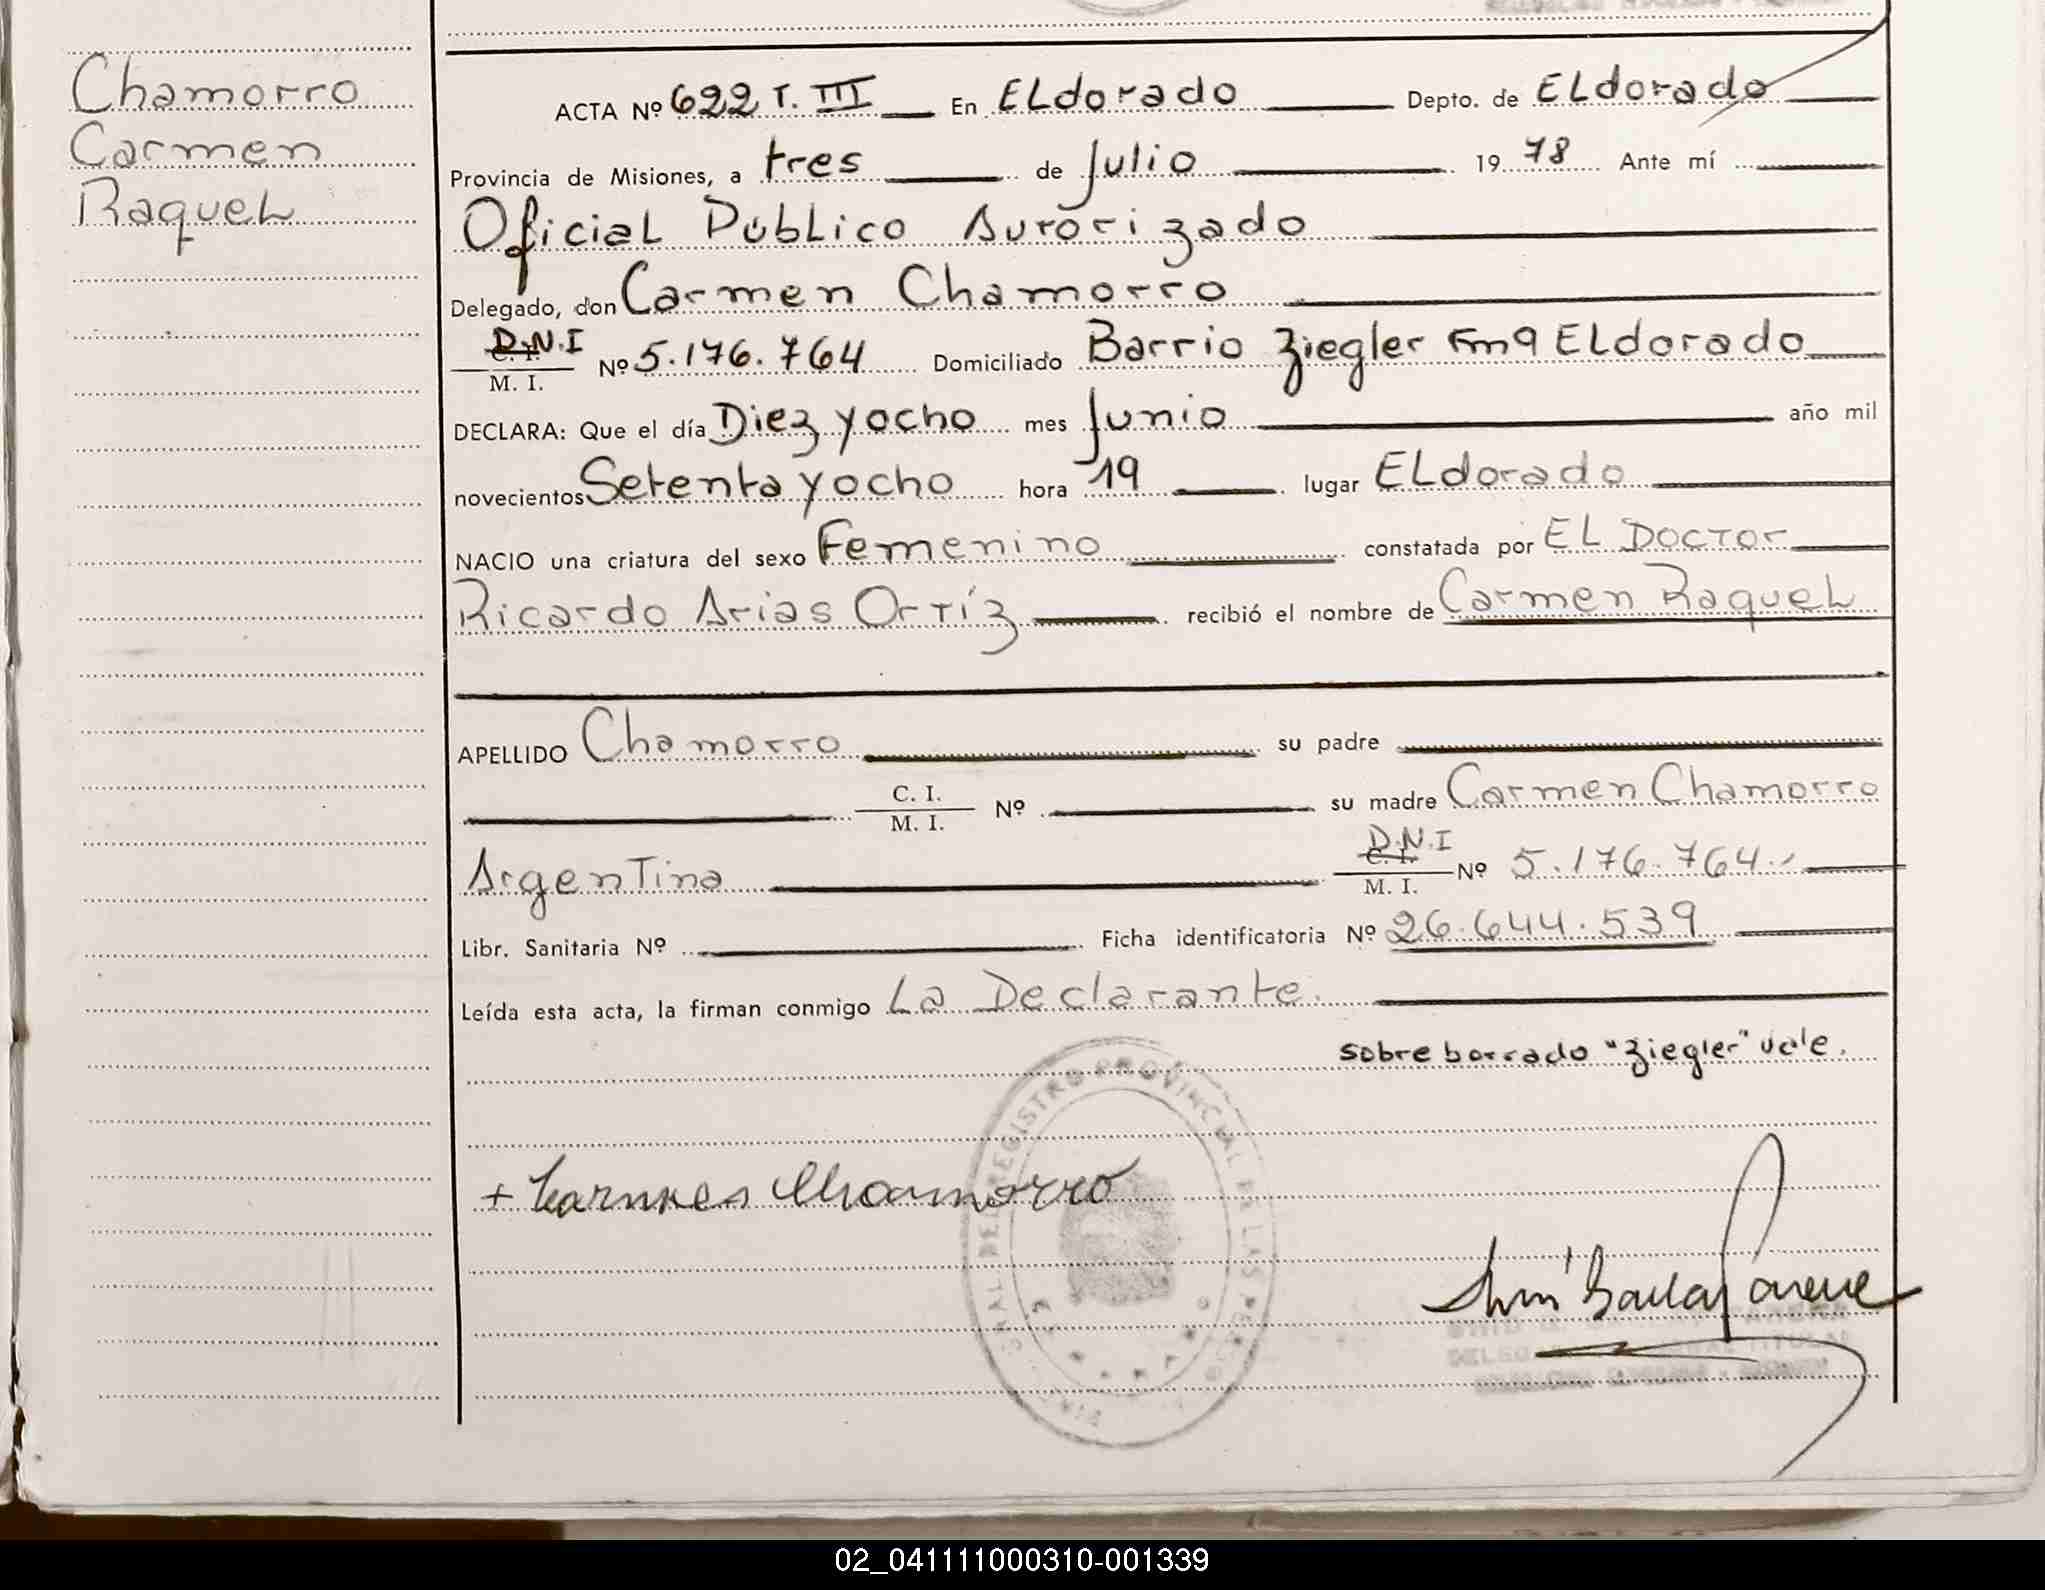 Chamorro
Carmen
Raquel
ACTA Nº 622 T. III En Eldorado Depto. de Eldorado
Provincia de Misiones, a tres de Julio 19 78 Ante mí
Oficial Público Autorizado
Delegado, don Carmen Chamorro
D.N.I
C. I.
M. I.
Nº 5.176.764 Domiciliado Barrio Ziegler Km 9 Eldorado
DECLARA: Que el día Diez y ocho mes Junio año mil
novecientos Setenta y ocho hora 19 lugar Eldorado
NACIO una criatura del sexo Femenino constatada por El Doctor
Ricardo Arias Ortíz recibió el nombre de Carmen Raquel
APELLIDO Chamorro su padre
C. I.
M. I.
Nº su madre Carmen Chamorro
Argentina D.N.I
C. I.
M. I.
Nº 5.176.764.-
Libr. Sanitaria Nº Ficha identificatoria Nº 26.644.539
Leída esta acta, la firman conmigo La Declarante.
sobre borrado "Ziegler" vale.
REGISTRO PROVINCIAL DE LAS PERSONAS
+ Carmen Chamorro
02_041111000310-001339